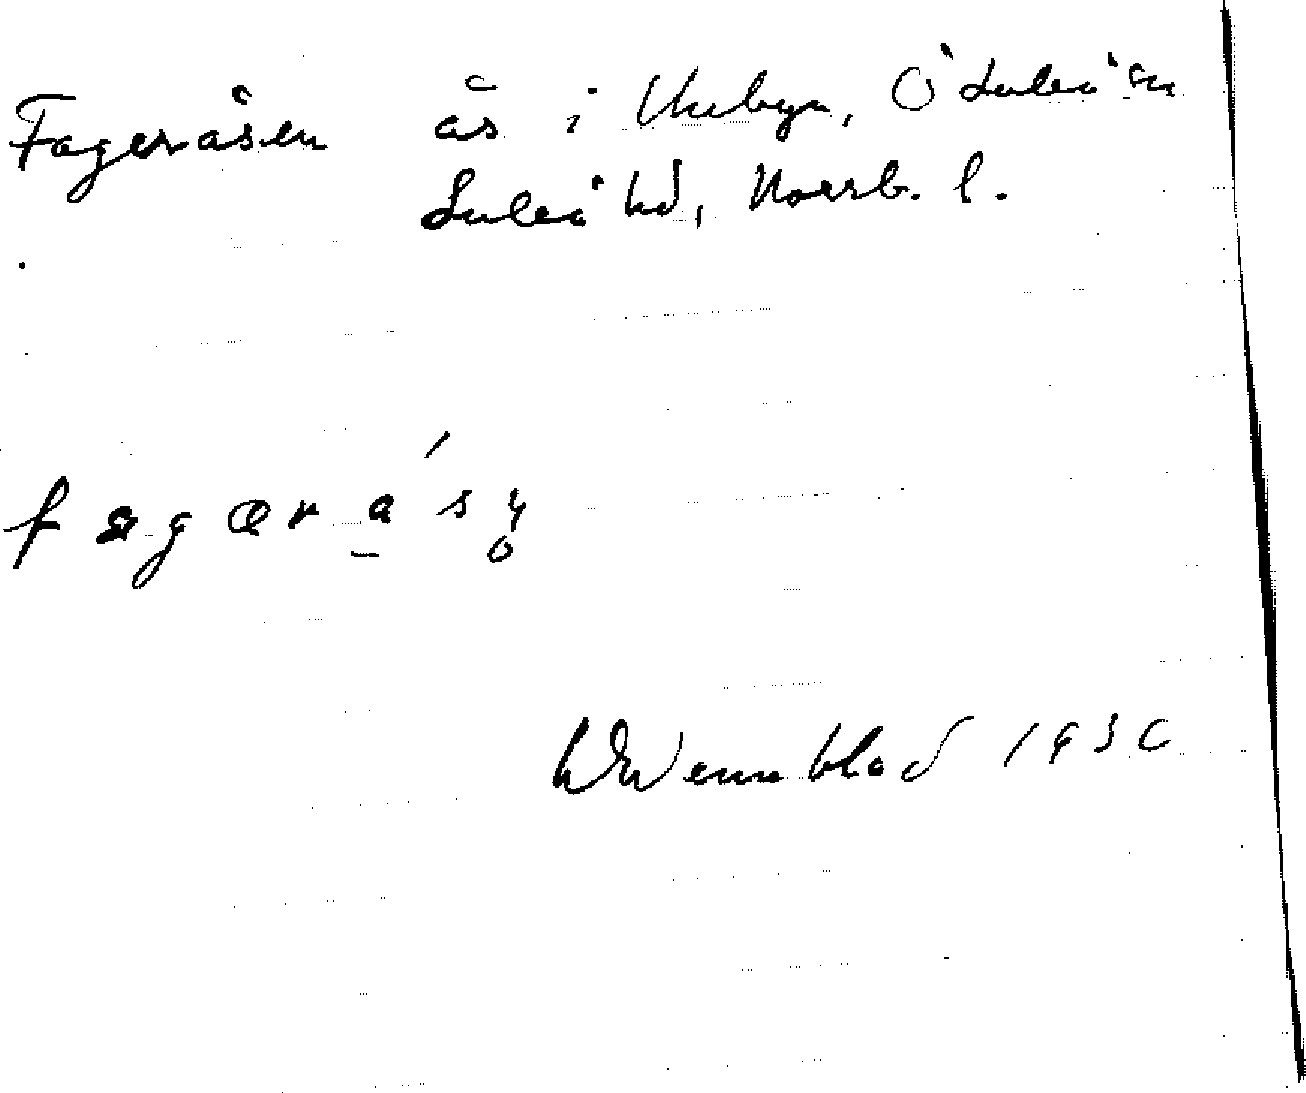 Fageråsen ås i Unbyn, Ö Luleå sn
Luleå hd, Norrb. l.
Wennblad 1930